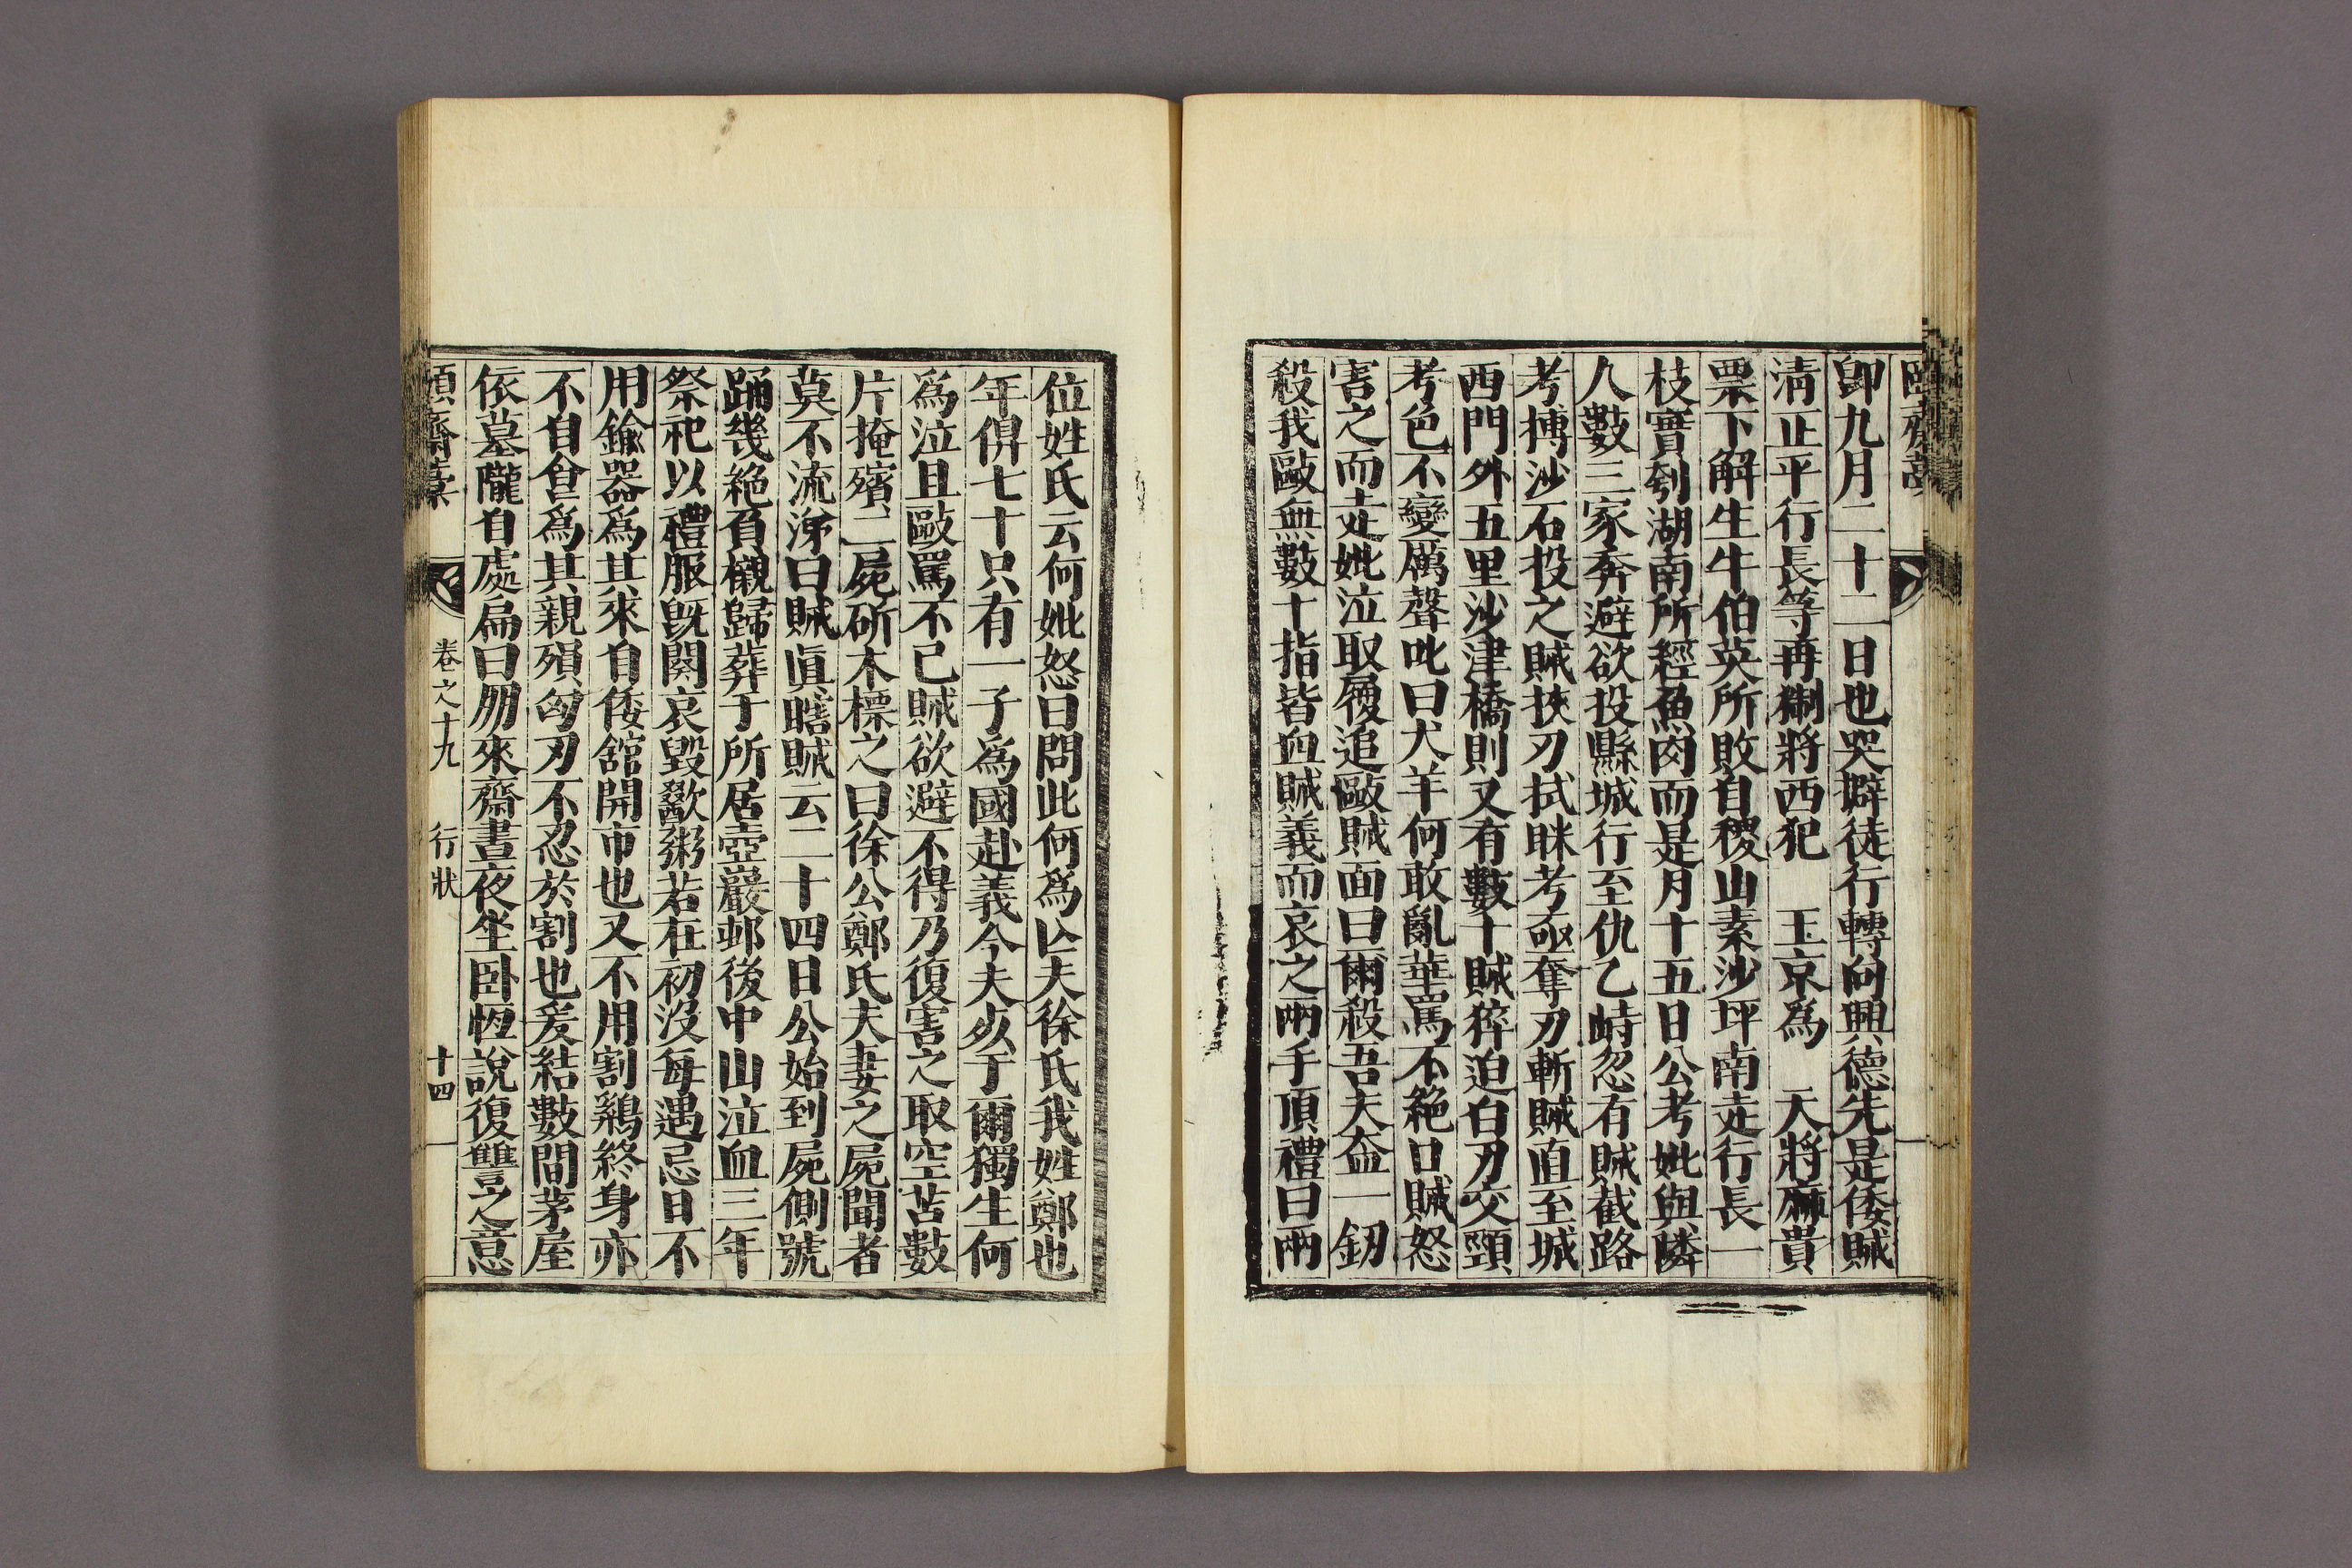 卽九月二十二日也哭擗徒行轉向興德先是倭賊
淸正平行長等再猘將西犯　玉京爲　天將麻貴
票下解生牛伯英所敗自稷山素沙坪南走行長一
枝實刳湖南所經魚肉而是月十五日公考妣與隣
人數三家奔避欲投縣城行至仇乙峙忽有賊截路
考搏沙石投之賊挾刃拭眯考亟奪刃斬賊直至城
西門外五里沙津橋則又有數十賊猝迫白刃交頸
考色不變厲聲叱曰犬羊何敢亂華罵不絶口賊怒
害之而走妣泣取屨追毆賊面曰爾殺吾夫盍一釰
殺我毆無數十指皆血賊義而哀之兩手頂禮曰兩
位姓氏云何妣怒曰問此何爲亾夫徐氏我姓鄭也
年俱七十只有一子爲國赴義今夫歿于爾獨生何
爲泣且毆罵不已賊欲避不得乃復害之取空苫數
片掩殯二屍斫木標之曰徐公鄭氏夫妻之屍聞者
莫不流涕曰賊眞瞎賊云二十四日公始到屍側號
踊幾絶負櫬歸葬于所居壺巖邨後中山泣血三年
祭祀以禮服旣闋哀毀歠粥若在初沒每遇忌日不
用鍮器爲其來自倭舘開市也又不用割鷄終身亦
不自食爲其親殞匈刃不忍於割也爰結數間茅屋
依墓隴自處扁曰朋來齋晝夜坐臥恆說復讐之意
頤齋藁　卷之十九　行狀　十四